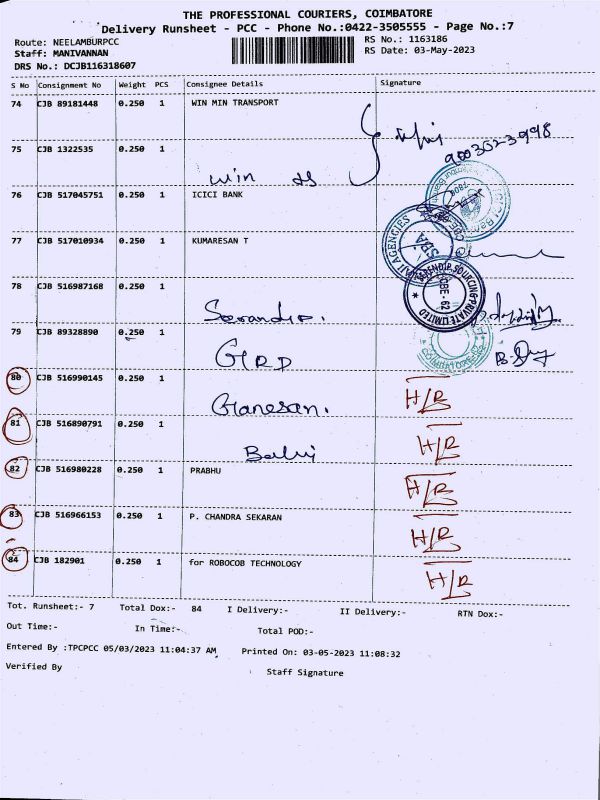 THE PROFESSIONAL COURIERS, COIMBATORE
Delivery Runsheet - PCC - Phone No.:0422-3505555 - Page No.:7
Route: NEELAMBURPCC
RS No.: 1163186
Staff: MANIVANNAN
RS Date: 03-May-2023
DRS No.: DCJB116318607
S No Consignment No Weight PCS Consignee Details Signature
74 CJB 89181448 0.250 1 WIN MIN TRANSPORT
75 CJB 1322535 0.250 1
win
76 CJB 517045751 0.250 1 ICICI BANK
77 CJB 517010934 0.250 1 KUMARESAN T
AGENCIES
SBA.
78 CJB 516987168 0.250 1
SOURCING PRIVATE LIMITED
CBE-62
79 CJB 89328890 0.250 1
GRD
COIMBATORE
80 CJB 516990145 0.250 1
Ganesan.
H/R
81 CJB 516890791 0.250 1
H/R
82 CJB 516980228 0.250 1 PRABHU
H/R
83 CJB 516966153 0.250 1 P. CHANDRA SEKARAN
H/R
84 CJB 182901 0.250 1 for ROBOCOB TECHNOLOGY
H/R
Tot. Runsheet:- 7 Total Dox:- 84 I Delivery:- II Delivery:- RTN Dox:-
Out Time:- In Time:- Total POD:-
Entered By :TPCPCC 05/03/2023 11:04:37 AM Printed On: 03-05-2023 11:08:32
Verified By Staff Signature